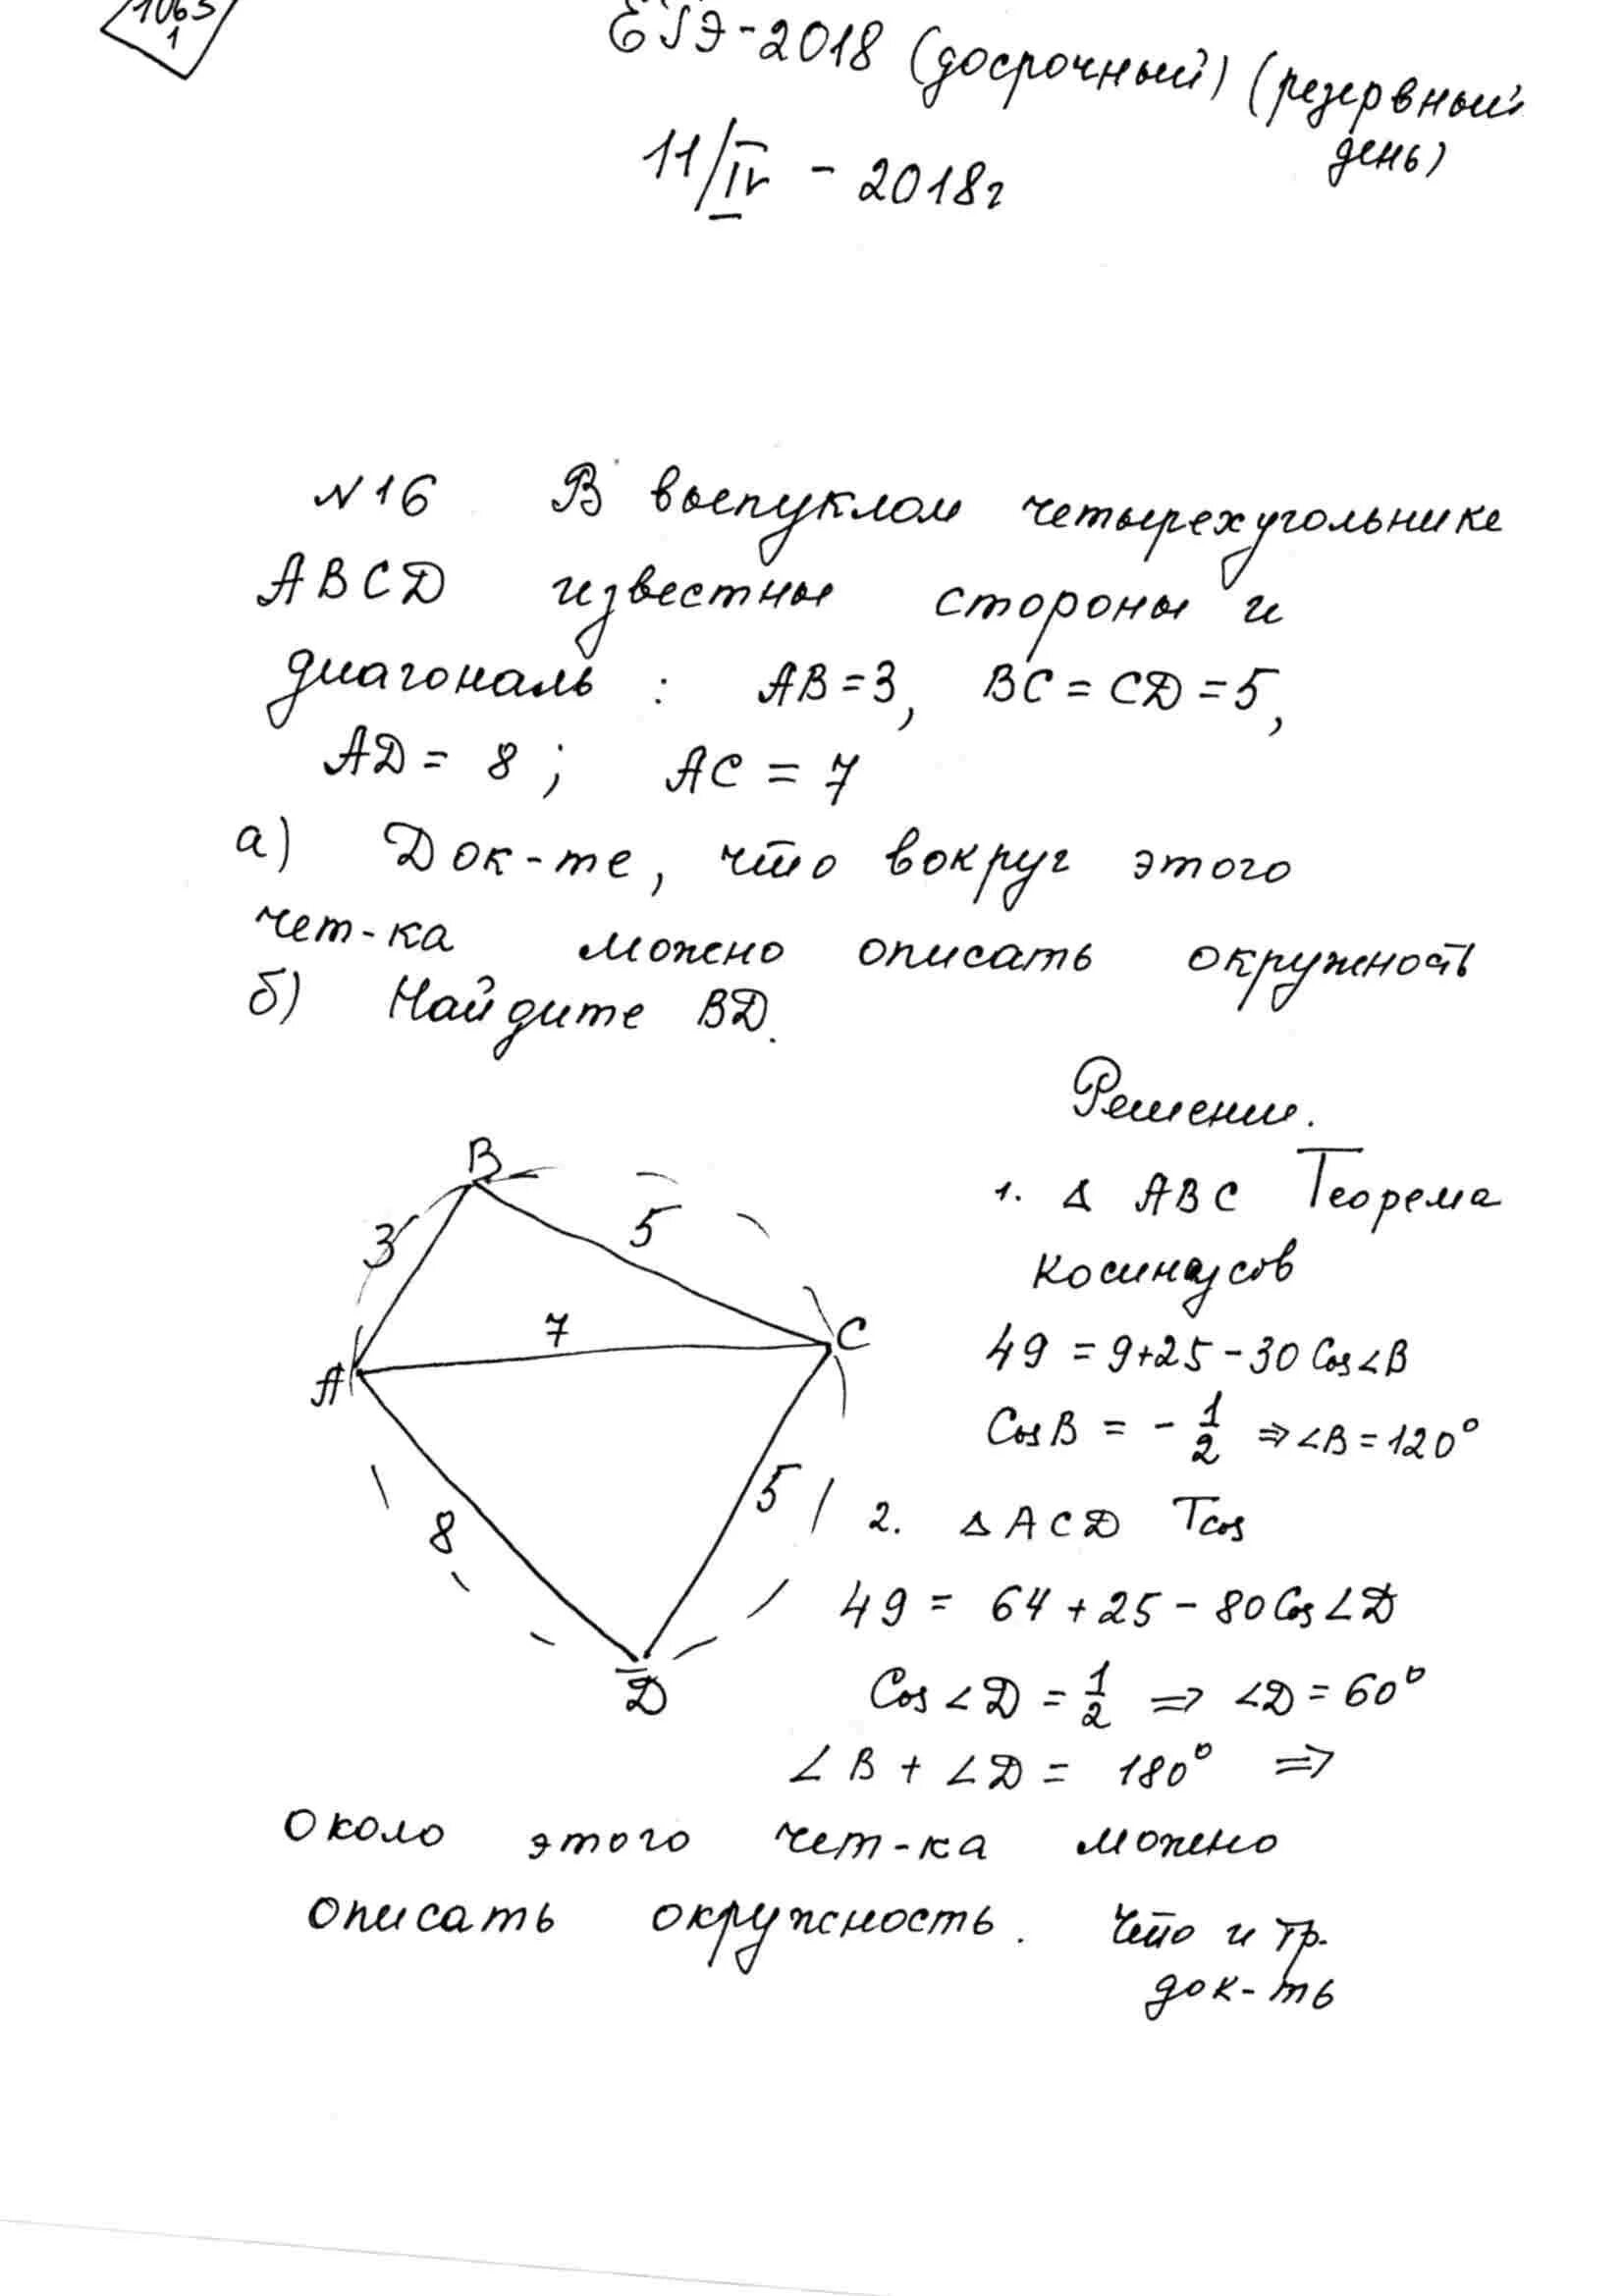 1063
1
ЕГЭ-2018 (досрочный) (резервный
день)
11/IV - 2018г
N16 В выпуклом четырехугольнике
ABCD известны стороны и
диагональ : AB=3, BC=CD=5,
AD= 8 ; AC = 7
а) Док-те, что вокруг этого
чет-ка можно описать окружность
б) Найдите BD.
Решение.
B
3
5
7
A
C
8
5
D
1. Δ ABC Теорема
косинусов
49 = 9+25-30 Cos∠B
CosB = - 1/2 ⇒ ∠B = 120°
2. Δ ACD Tcos
49 = 64 + 25 - 80 Cos∠D
Cos∠D = 1/2 ⇒ ∠D = 60°
∠B + ∠D = 180° ⇒
около этого чет-ка можно
описать окружность. Что и тр.
док-ть